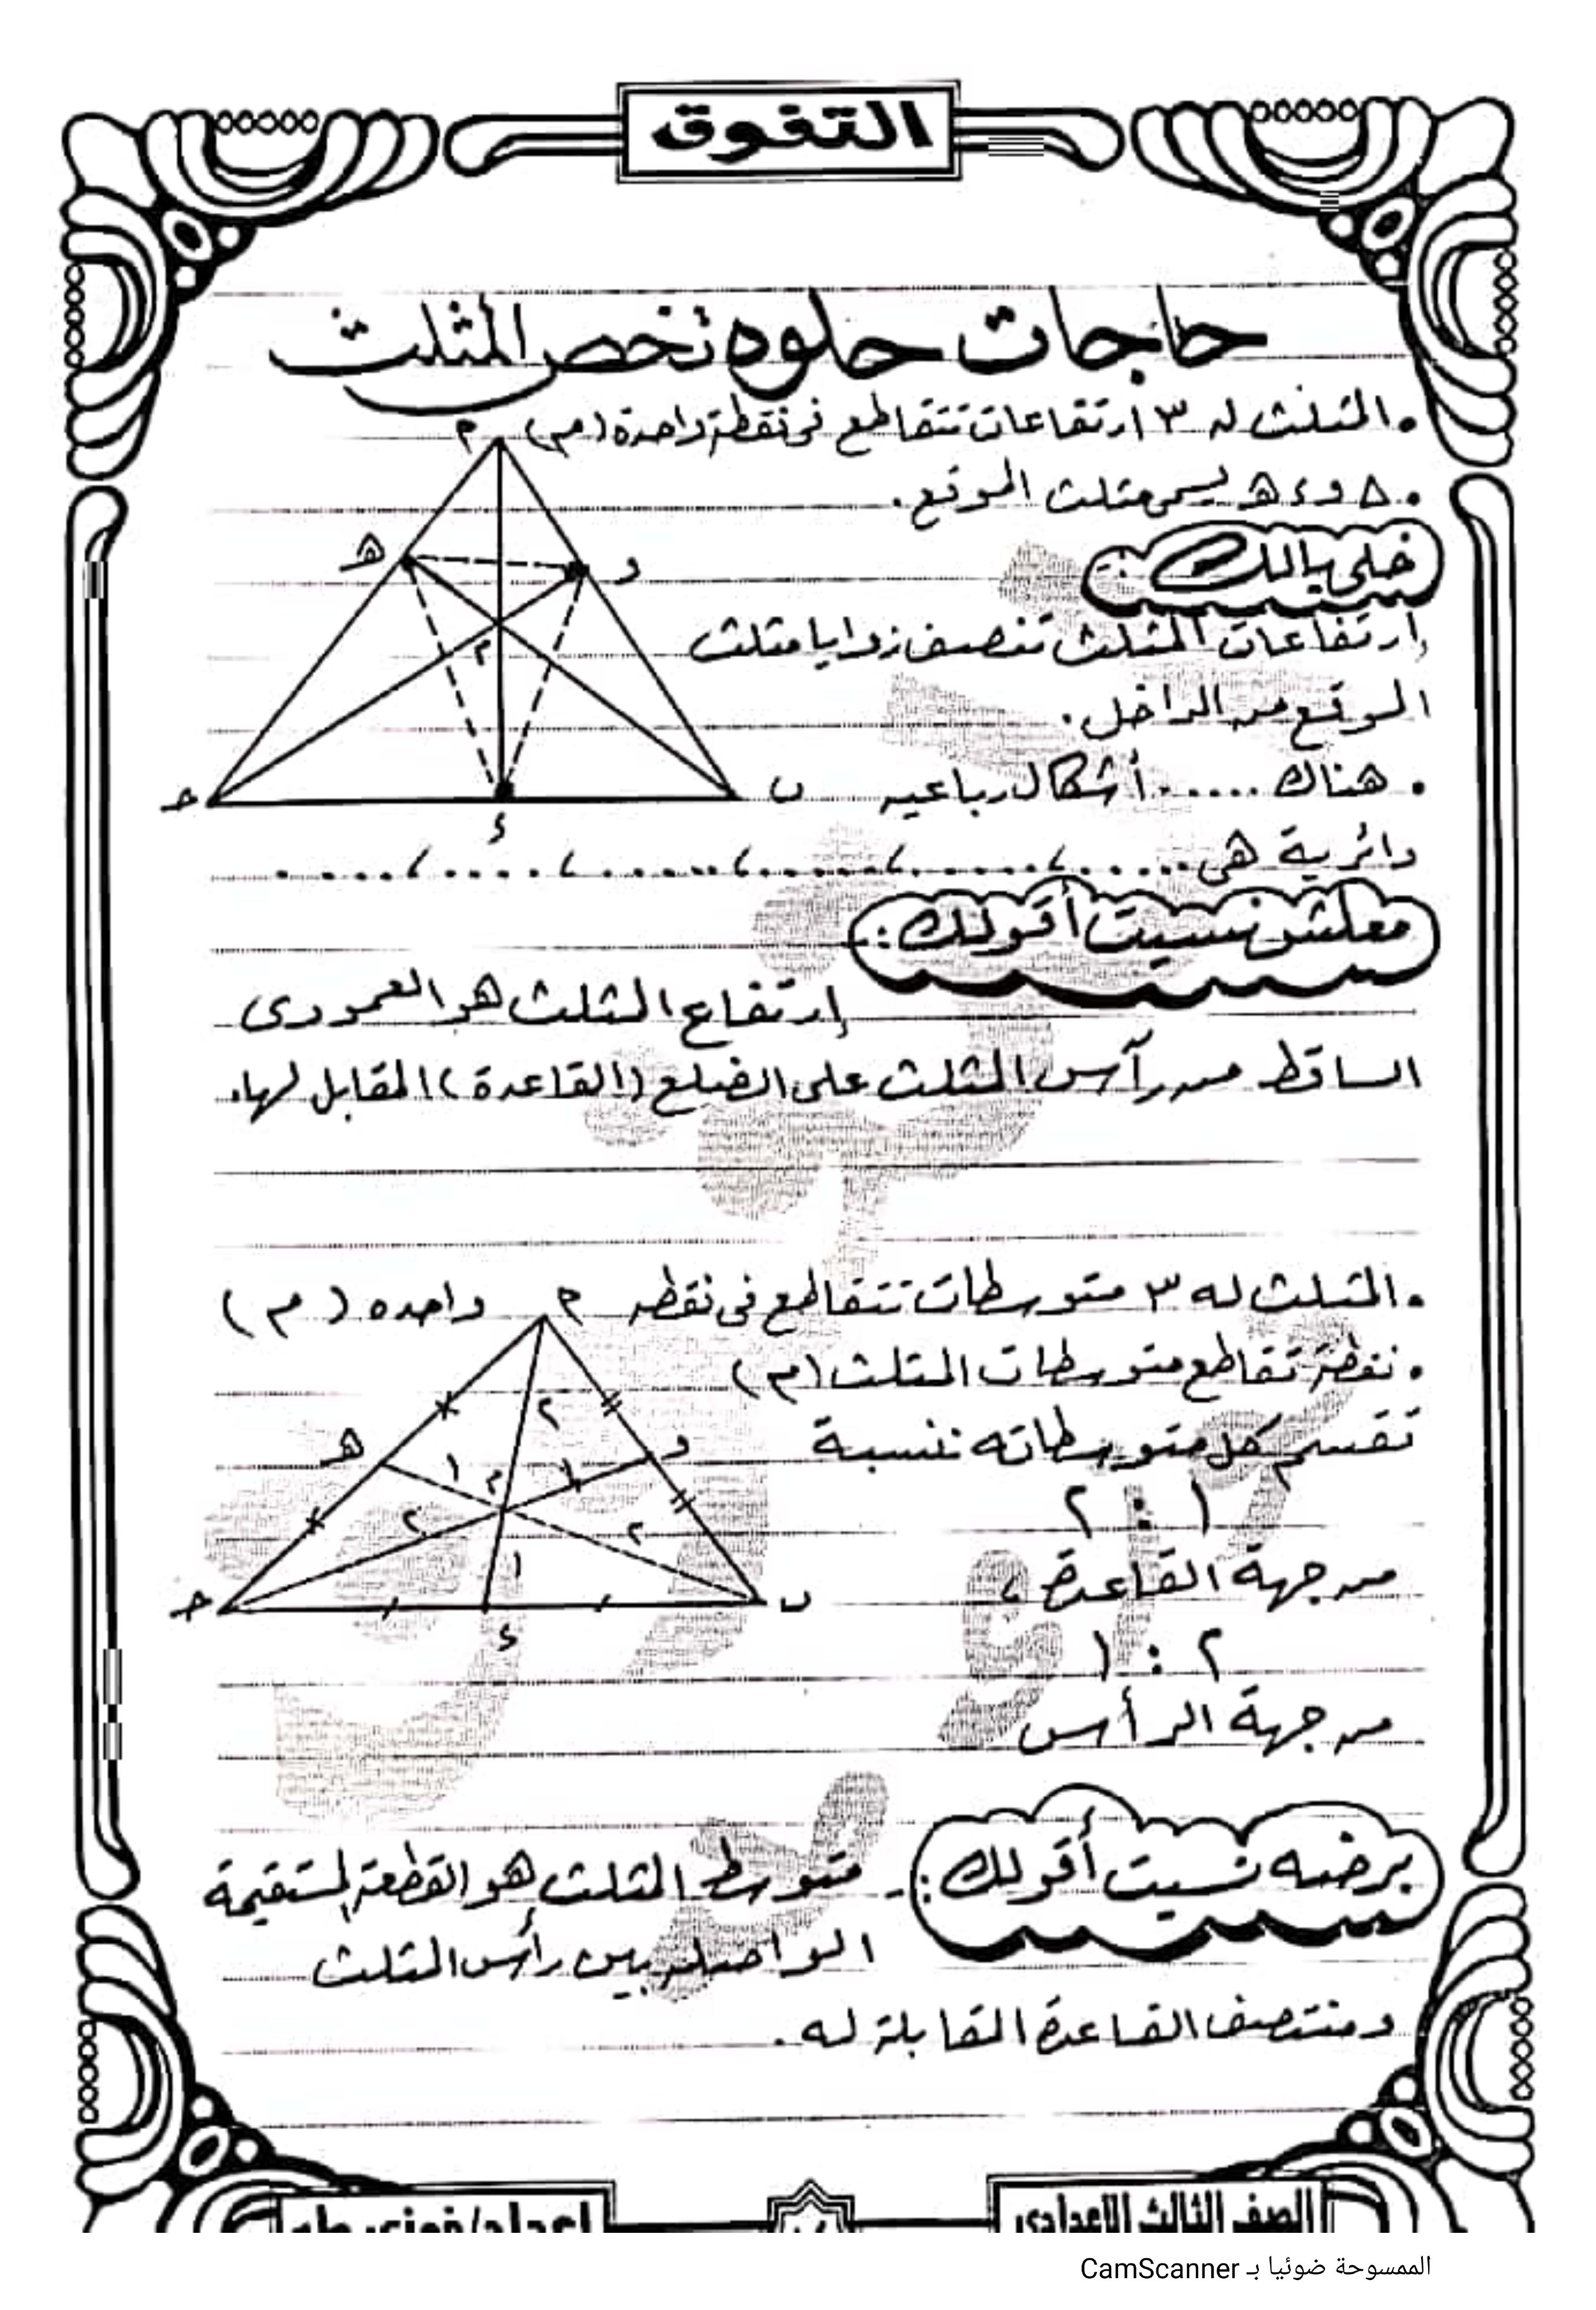 التفوق
حاجات حلوه تخص المثلث
• المثلث له ٣ ارتفاعات تتقاطع فى نقطة واحدة (م)
• △ و ء ھ يسمى مثلث الموقع.
خلى بالك :-
إرتفاعات المثلث تنصف زوايا مثلث
الموقع من الداخل.
• هناك ...... أشكال رباعيه
دائرية هى ......، ......، ......، ......، ......، ......
معلش نسيت أقولك :-
إرتفاع المثلث هو العمودى
الساقط من رأس المثلث على الضلع (القاعدة) المقابل لها.
م
ھ
و
م
ح
ب
ء
• المثلث له ٣ متوسطات تتقاطع فى نقطه واحده (م)
• نقطة تقاطع متوسطات المثلث (م)
تقسم كل متوسطاته بنسبة
١ : ٢
من جهة القاعدة ،
٢ : ١
من جهة الرأس
م
٢
ھ
و
١
م
١
٢
٢
١
ح
ب
ء
برضه نسيت أقولك :- متوسط المثلث هو القطعة المستقيمة
الواصله بين رأس المثلث
ومنتصف القاعدة المقابلة له.
الصف الثالث الإعدادى
إعداد/فوزى
الممسوحة ضوئيا بـ CamScanner